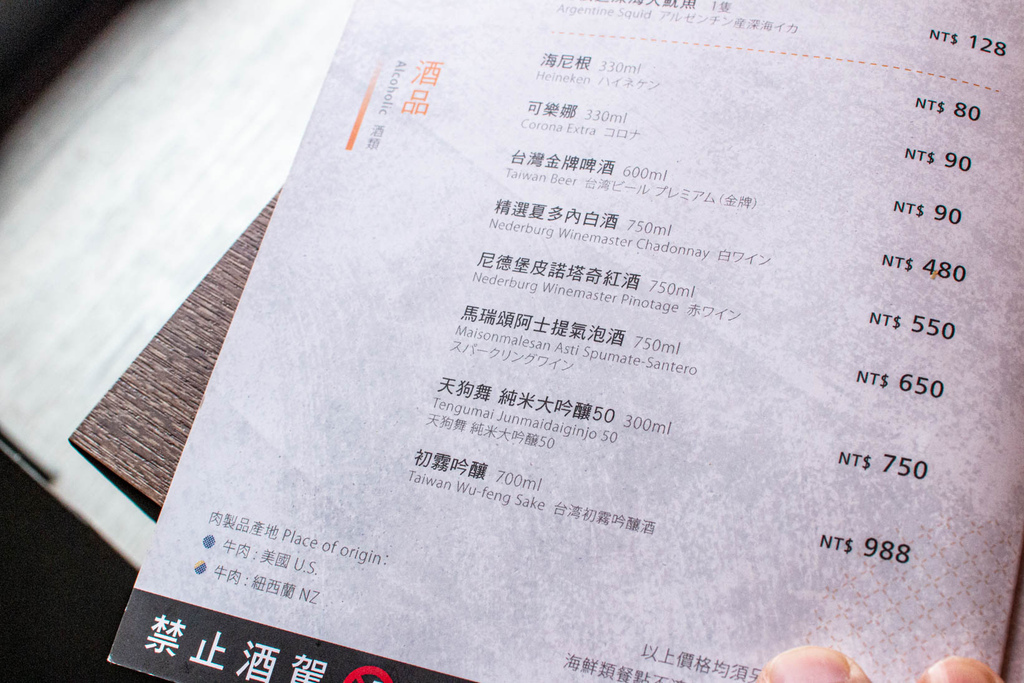 1隻
Argentine Squid アルゼンチン産深海イカ
NT$ 128
酒品
Alcoholic 酒類
海尼根 330ml
NT$ 80
Heineken ハイネケン
可樂娜 330ml
NT$ 90
Corona Extra コロナ
台灣金牌啤酒 600ml
NT$ 90
Taiwan Beer 台湾ビール プレミアム(金牌)
精選夏多內白酒 750ml
NT$ 480
Nederburg Winemaster Chadonnay 白ワイン
尼德堡皮諾塔奇紅酒 750ml
NT$ 550
Nederburg Winemaster Pinotage 赤ワイン
馬瑞頌阿士提氣泡酒 750ml
NT$ 650
Maisonmalesan Asti Spumate-Santero
スパークリングワイン
天狗舞 純米大吟釀50 300ml
NT$ 750
Tengumai Junmaidaiginjo 50
天狗舞 純米大吟醸50
初霧吟釀 700ml
NT$ 988
Taiwan Wu-feng Sake 台湾初霧吟醸酒
肉製品產地 Place of origin:
牛肉:美國 U.S.
牛肉:紐西蘭 NZ
禁止酒駕
以上價格均須
海鮮類餐點不